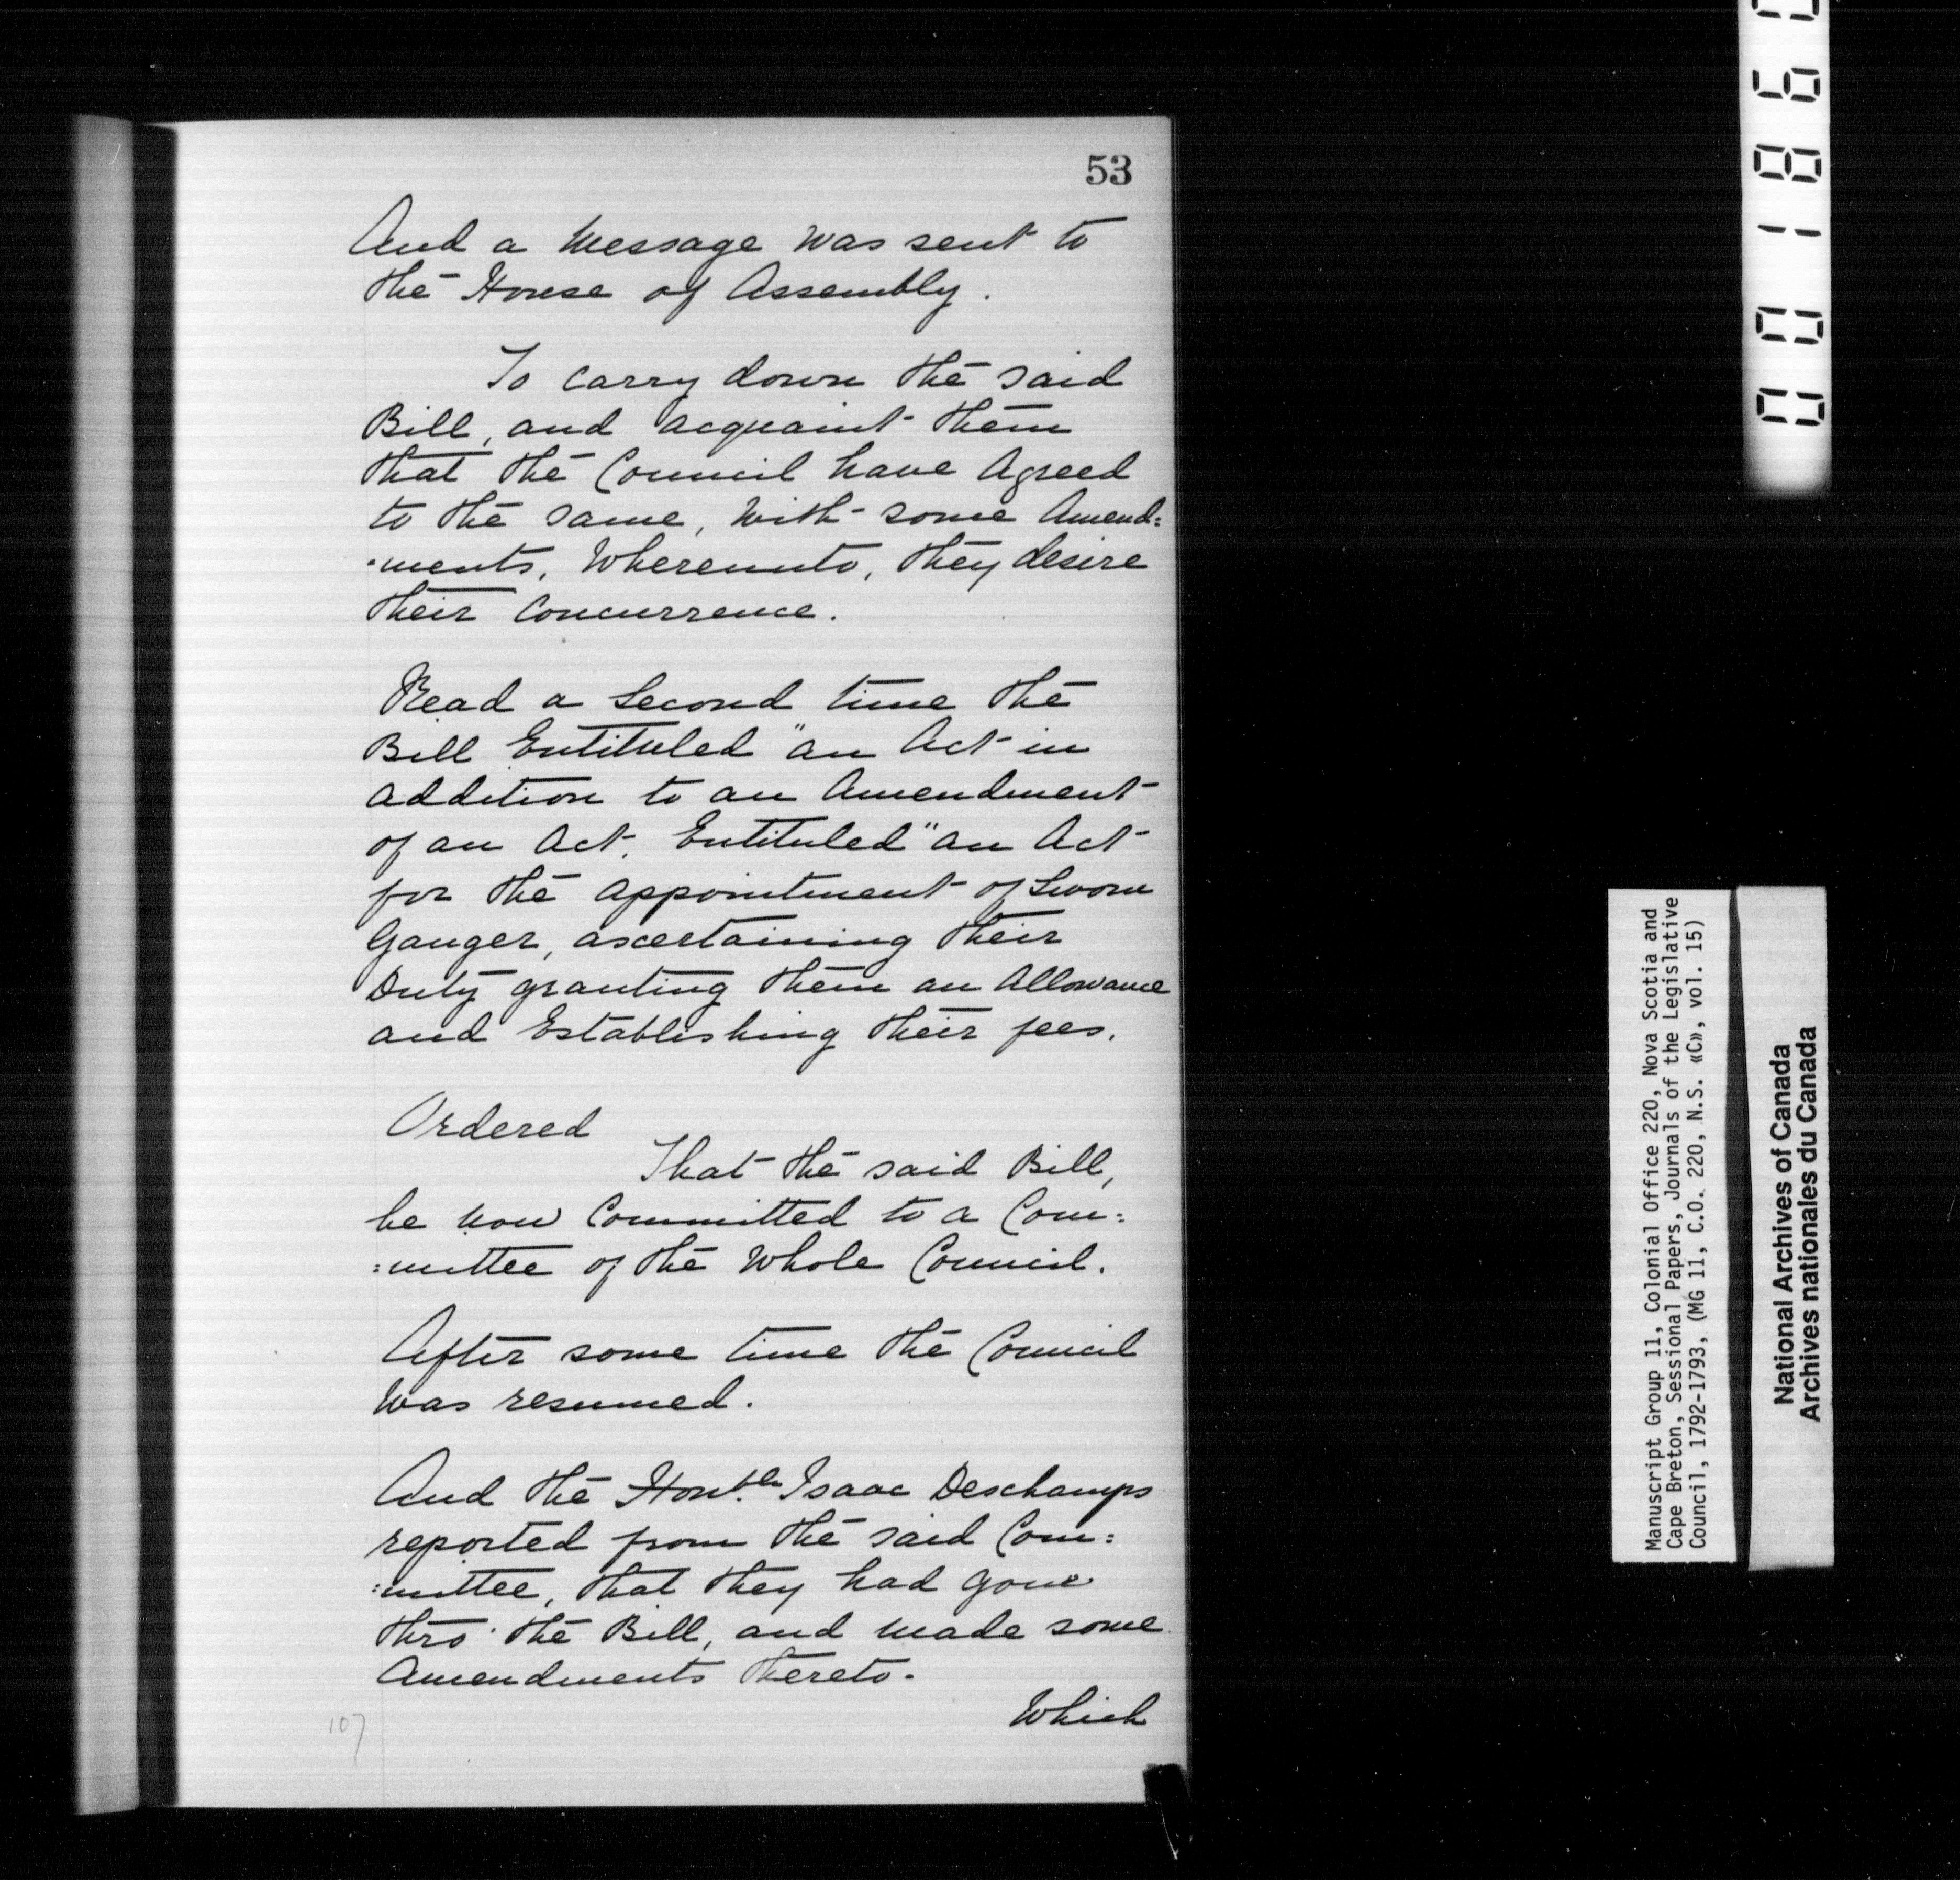 53
And a Message was sent to
the House of Assembly.
To carry down the said
Bill, and acquaint them
that the Council have Agreed
to the same, with some Amend:
:ments, Whereunto, they desire
their Concurrence.
Read a Second time the
Bill Entituled "an Act in
addition to an Amendment
of an Act, Entituled "an Act
for the appointment of Sworn
Gauger, ascertaining their
Duty granting them an Allowance
and Establishing their fees.
Ordered
That the said Bill,
be now Committed to a Com:
:mittee of the Whole Council.
After some time the Council
was resumed.
And the Hon.ble Isaac Deschamps
reported from the said Com:
:mittee, that they had gone
thro' the Bill, and made some
Amendments thereto.
Which
107
Manuscript Group 11, Colonial Office 220, Nova Scotia and
Cape Breton, Sessional Papers, Journals of the Legislative
Council, 1792-1793, (MG 11, C.O. 220, N.S. «C», vol. 15)
National Archives of Canada
Archives nationales du Canada